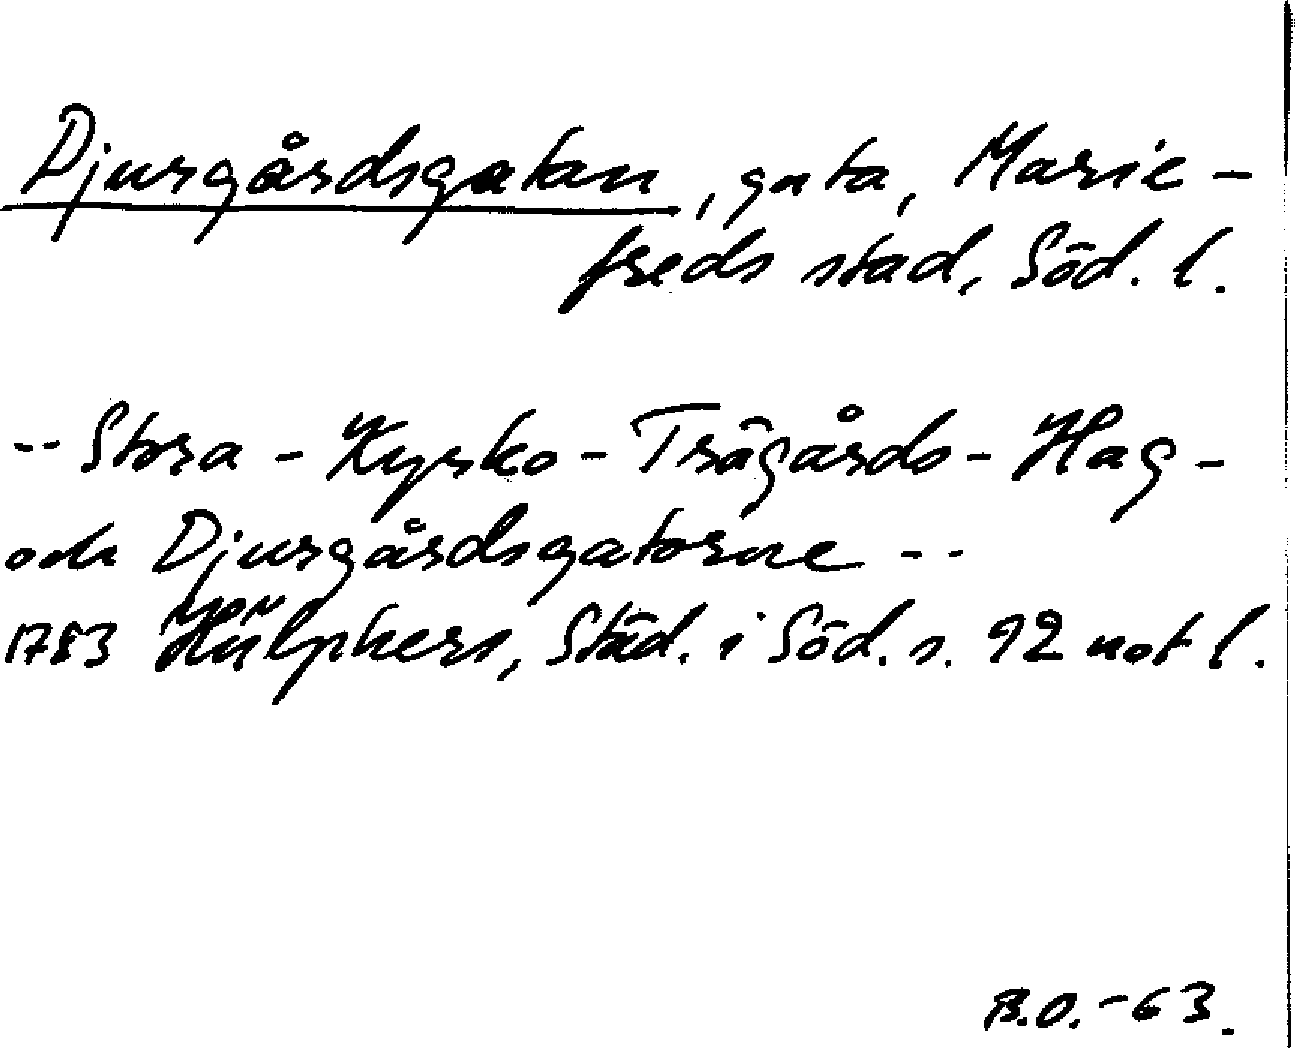 Djursgårdsgatan, gata, Marie-
freds stad, Söd. l.
-- Stora - Kyrko - Trägårds - Hag -
och Djurgårdsgatorne --
1783 Hülphers, Städ. i Söd. s. 92 not l.
B.O. -63.